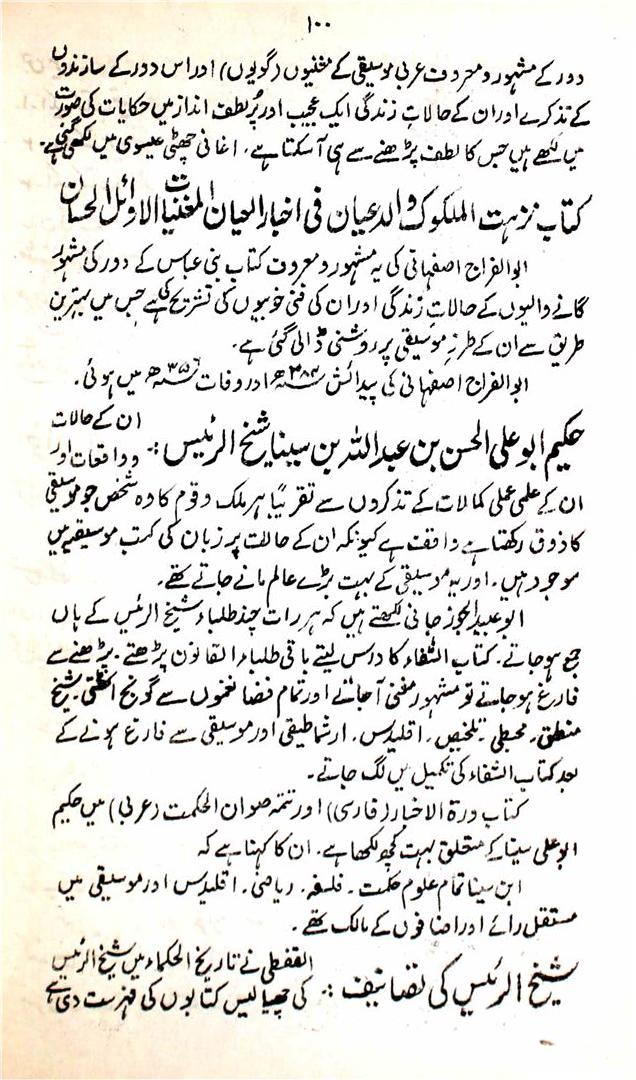 ۱۰۰
دور کے مشہور و معروف عربی موسیقی کے مغنیوں (گویوں) اور اس دور کے سازندوں
کے تذکرے اور ان کے حالات زندگی ایک عجیب اور پُر لطف انداز میں حکایات کی صورت
میں لکھے ہیں جس کا لطف پڑھنے سے ہی آ سکتا ہے۔ اغانی چھٹی عیسوی میں لکھی گئی ہے۔
کتاب نزہت الملکوک والدعیان فی اخبار العیان المغنیات الاوائل الحسان
ابوالفراج اصفہانی کی یہ مشہور و معروف کتاب بنی عباس کے دور کی مشہور
گانے والیوں کے حالات زندگی اور ان کی فنی خوبیوں کی تشریح کی ہے جس میں بہترین
طریق سے ان کے طرز موسیقی پر روشنی ڈالی گئی ہے۔
ابوالفراج اصفہانی کی پیدائش ۲۸۴ھ اور وفات ۳۵۶ھ میں ہوئی۔
حکیم ابو علی الحسن بن عبداللہ بن سینا شیخ الرئیس :۔ ان کے حالات
و واقعات اور
ان کے علمی عملی کمالات کے تذکروں سے تقریباً ہر ملک و قوم کا وہ شخص جو موسیقی
کا ذوق رکھتا ہے واقف ہے کیونکہ ان کے حالات ہر زبان کی کتب موسیقیہ میں
موجود ہیں۔ اور یہ موسیقی کے بہت بڑے عالم مانے جاتے تھے۔
ابو عبید الجوزجانی لکھتے ہیں کہ ہر رات چند طلباء شیخ الرئیس کے ہاں
جمع ہو جاتے۔ کتاب الشفاء کا درس لیتے باقی طلباء القانون پڑھتے۔ پڑھنے سے
فارغ ہو جاتے تو مشہور مغنی آ جاتے اور تمام فضا نغموں سے گونج اٹھتی۔ شیخ
منطق۔ مجسطی۔ تلخیص۔ اقلیدس۔ ارشماطیقی اور موسیقی سے فارغ ہونے کے
بعد کتاب الشفاء کی تکمیل میں لگ جاتے۔
کتاب درۃ الاخبار (فارسی) اور تتمہ صوان الحکمت (عربی) میں حکیم
ابو علی سینا کے متعلق بہت کچھ لکھا ہے۔ ان کا کہنا ہے کہ
ابن سینا تمام علوم حکمت۔ فلسفہ۔ ریاضی۔ اقلیدس اور موسیقی میں
مستقل رائے اور اضافوں کے مالک تھے۔
شیخ الرئیس کی تصانیف :۔ القفطی نے تاریخ الحکماء میں شیخ الرئیس
کی چھیالیس کتابوں کی فہرست دی ہے